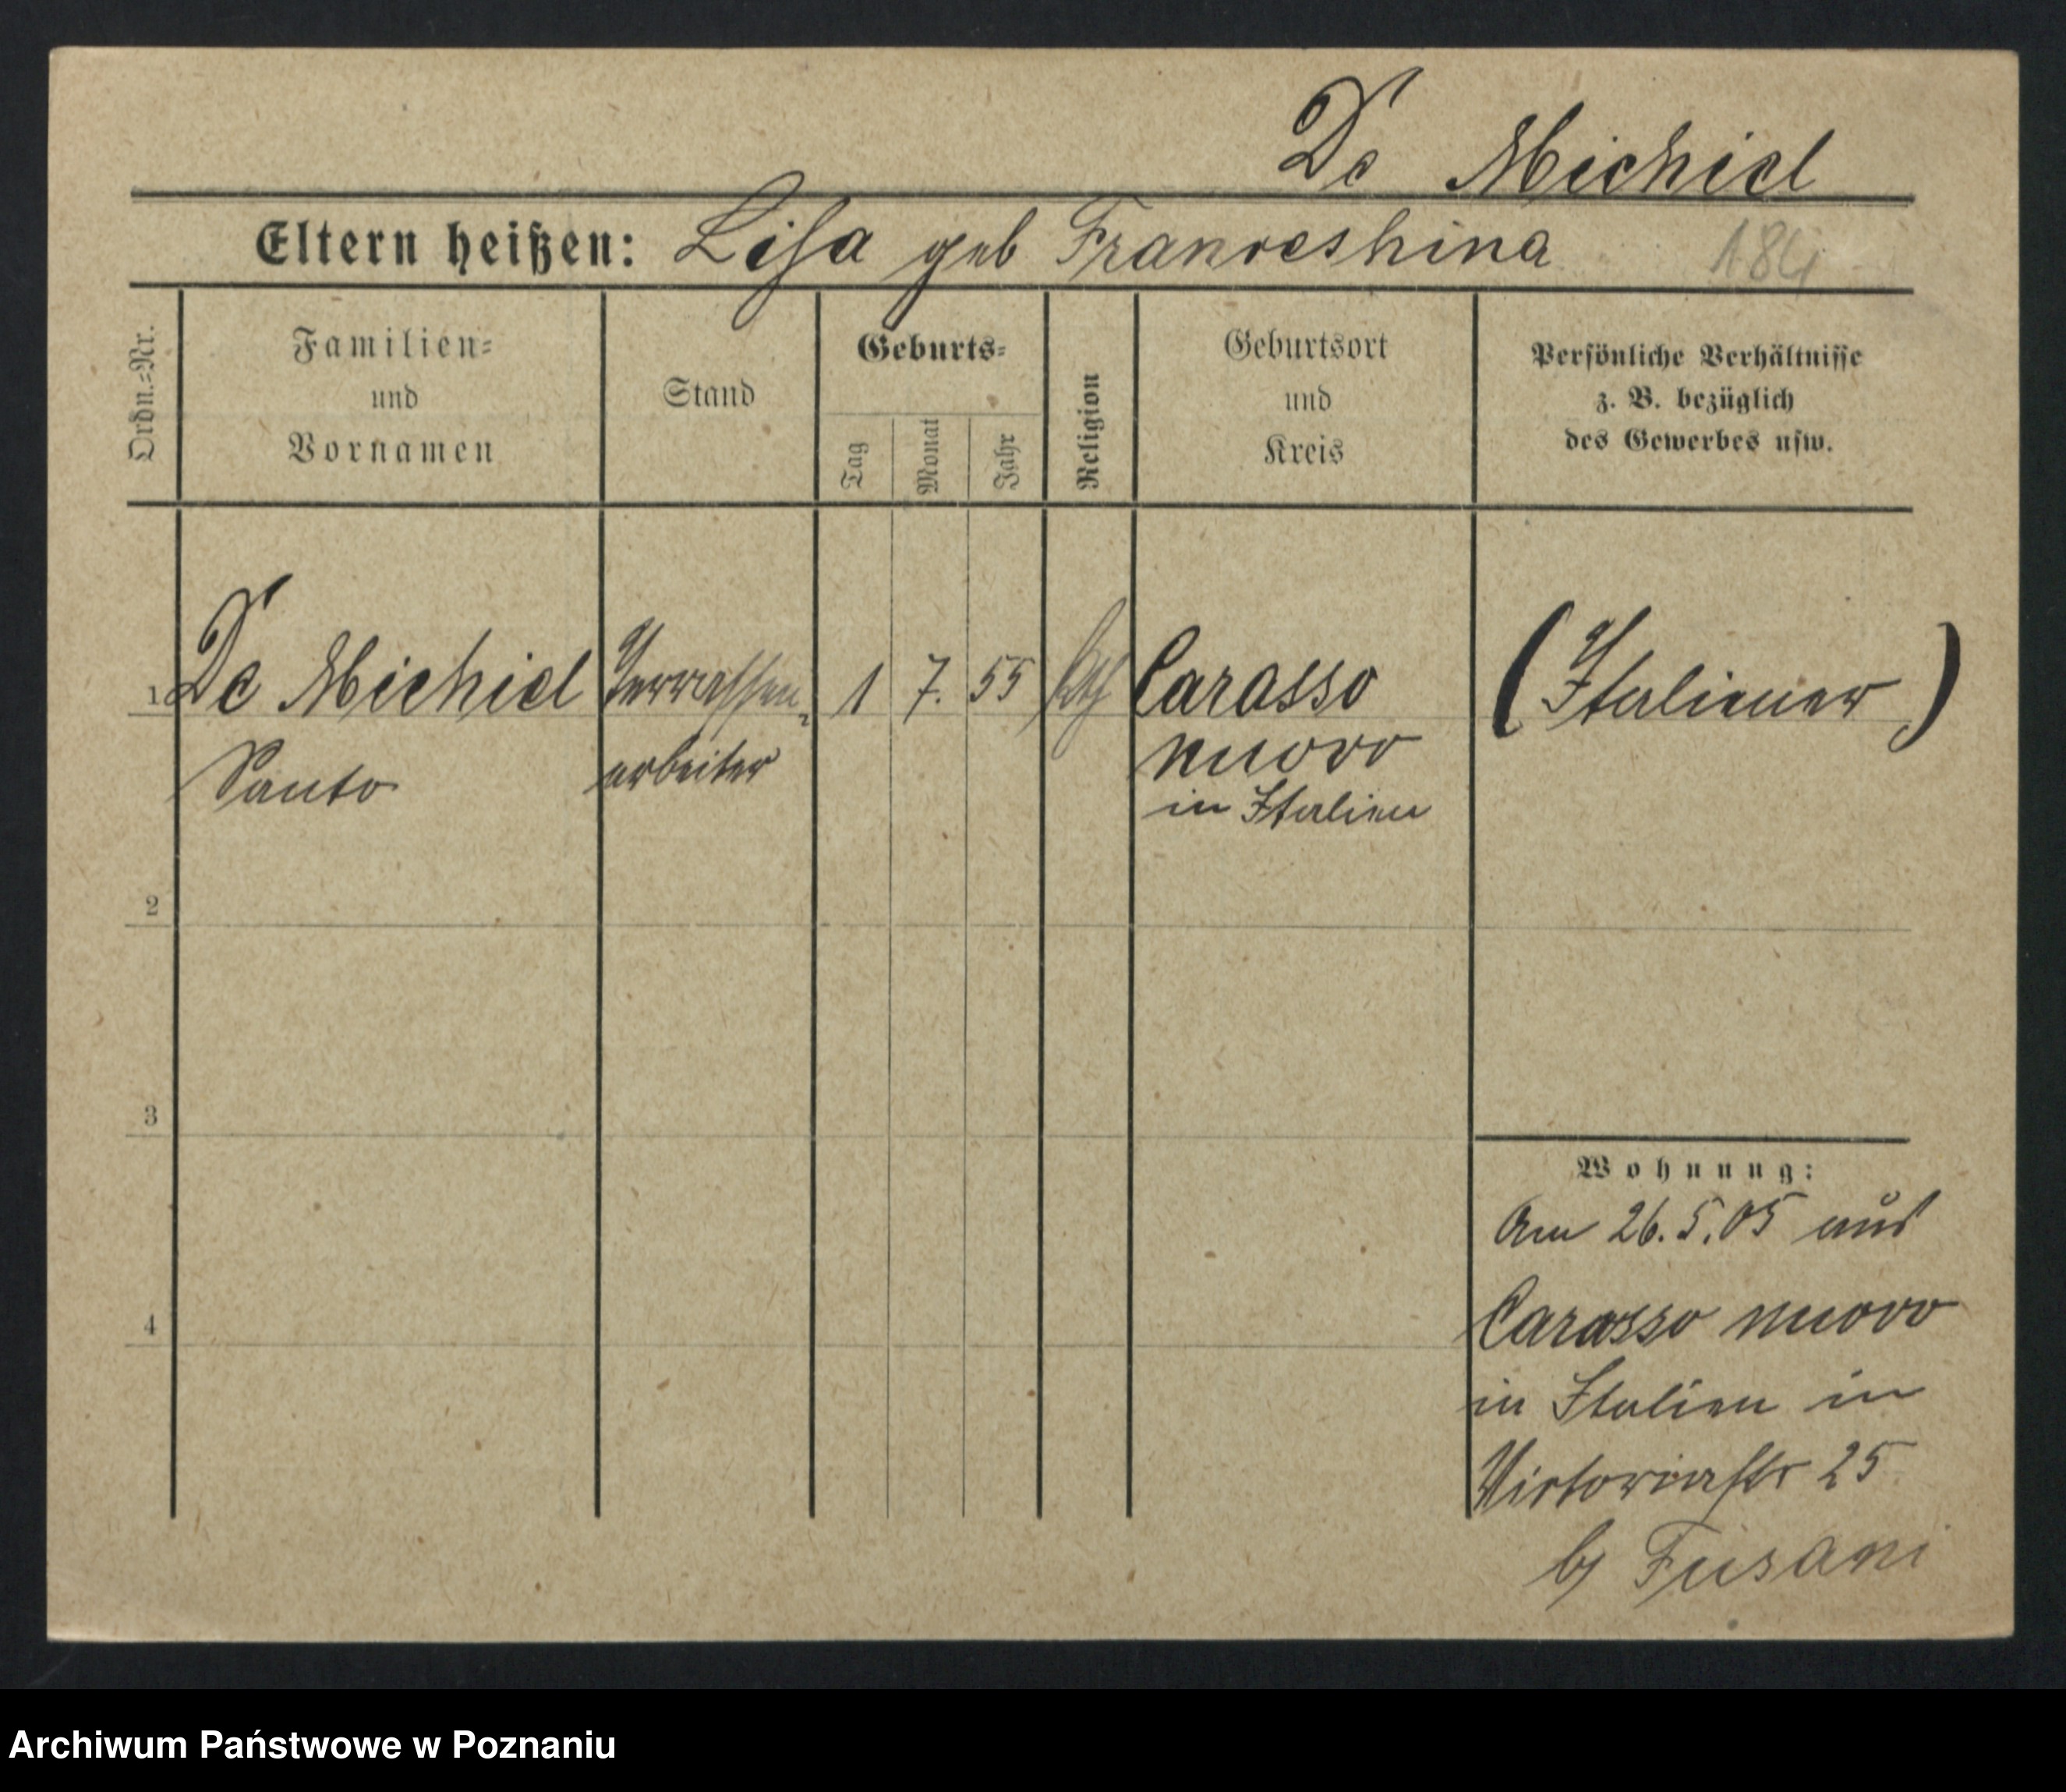 De Michiel
Eltern heißen: Lisa geb Franceshina
184
Ordn.=Nr.
Familien=
und
Vornamen
Stand
Geburts=
Tag
Monat
Jahr
Religion
Geburtsort
und
Kreis
Persönliche Verhältnisse
z. B. bezüglich
des Gewerbes usw.
1 De Michiel Terrassen- 1 7. 55 kath Carasso (Italiener)
Santo arbeiter nuovo
in Italien
2
3
4
Wohnung:
Am 26.5.05 aus
Carasso nuovo
in Italien in
Victoriastr 25
b/ Fusani
Archiwum Państwowe w Poznaniu